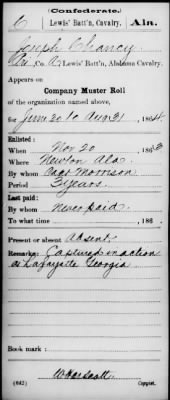 (Confederate.)
C Lewis' Batt'n, Cavalry. Ala.
Joseph Chancy
Pvt., Co. A, Lewis' Batt'n, Alabama Cavalry.
Appears on
Company Muster Roll
of the organization named above,
for June 30 to Aug 31, 1864.
Enlisted:
When Nov 20, 1863
Where Newton Ala
By whom Capt Morrison
Period 3 years
Last paid:
By whom Never paid
To what time , 186 .
Present or absent Absent
Remarks: Captured in action
at Lafayette Georgia
Book mark:
(642) Copyist.